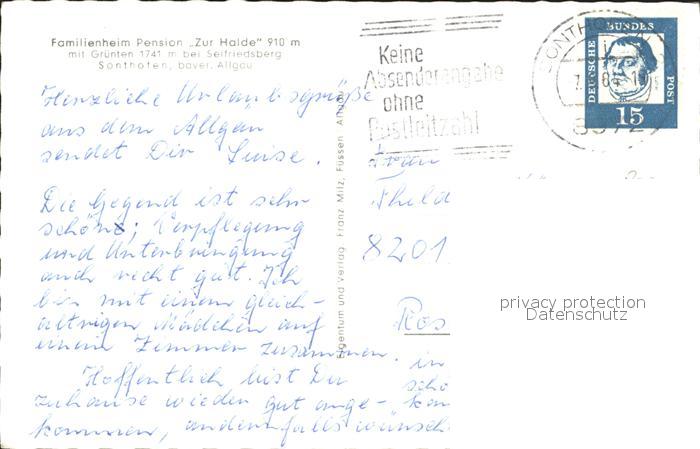 Familienheim Pension „Zur Halde" 910 m
mit Grünten 1741 m bei Seifriedsberg
Sonthofen, bayer. Allgäu
Herzliche Urlaubsgrüße
aus dem Allgäu
sendet Dir Luise.
Die Gegend ist sehr
schön; Verpflegung
und Unterbringung
auch recht gut. Ich
bin mit einem gleich-
altrigen Mädchen auf
einem Zimmer zusammen.
Hoffentlich bist Du
zuhause wieder gut ange-
kommen, andernfalls wünsch
Eigentum und Verlag Franz Milz, Füssen Allgäu
Keine
Absenderangabe
ohne
Postleitzahl
SONTHO
DEUTSCHE
BUNDES
POST
15
Frau
Thilda
8201
Ros
in
schö
privacy protection
Datenschutz